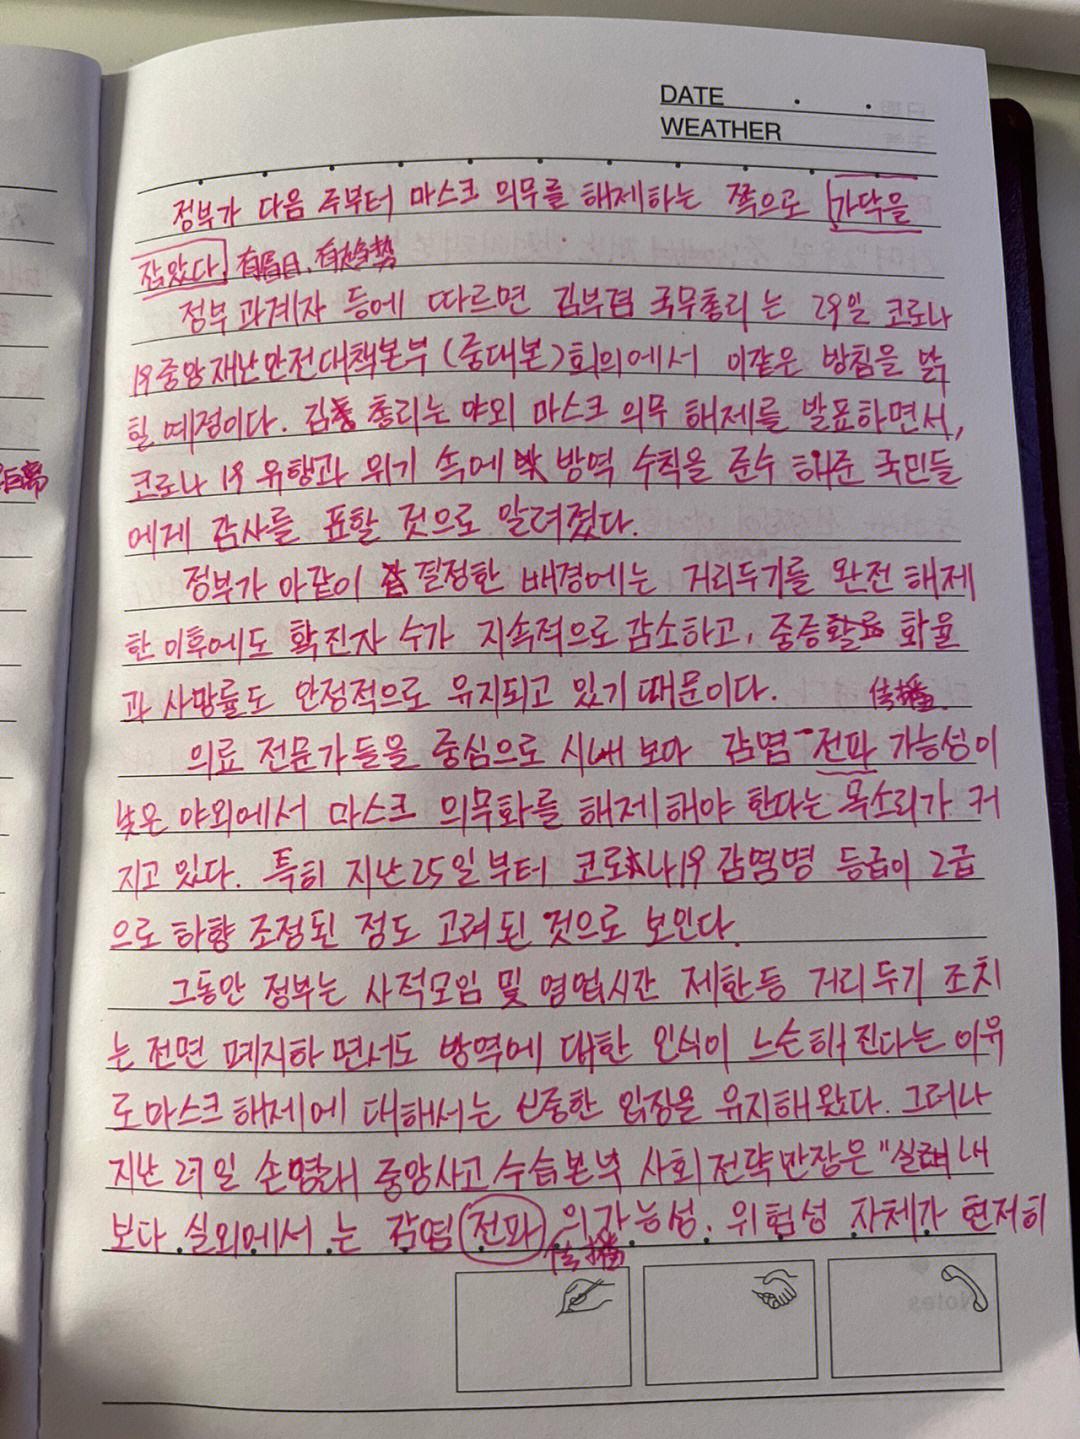 DATE . .
WEATHER
정부가 다음 주부터 마스크 의무를 해제하는 쪽으로 가닥을
잡았다. 有眉目, 有趋势
정부 관계자 등에 따르면 김부겸 국무총리는 29일 코로나
19 중앙재난안전대책본부(중대본)회의에서 이같은 방침을 밝
힐 예정이다. 김 총리는 야외 마스크 의무 해제를 발표하면서,
코로나 19 유행과 위기 속에 방역 수칙을 준수 해준 국민들
에게 감사를 표할 것으로 알려졌다.
정부가 아같이 결정한 배경에는 거리두기를 완전 해제
한 이후에도 확진자 수가 지속적으로 감소하고, 중증 화율
과 사망률도 안정적으로 유지되고 있기 때문이다.
传播
의료 전문가들을 중심으로 시내 보다 감염 전파 가능성이
낮은 야외에서 마스크 의무화를 해제해야 한다는 목소리가 커
지고 있다. 특히 지난 25일부터 코로나19 감염병 등급이 2급
으로 하향 조정된 점도 고려된 것으로 보인다.
그동안 정부는 사적모임 및 영업시간 제한등 거리두기 조치
는 전면 폐지하면서도 방역에 대한 인식이 느슨해진다는 이유
로 마스크 해제에 대해서는 신중한 입장을 유지해 왔다. 그러나
지난 27일 손영래 중앙사고수습본부 사회전략반장은 "실 내
보다 실외에서는 감염 전파 의 가능성. 위험성 자체가 현저히
传播